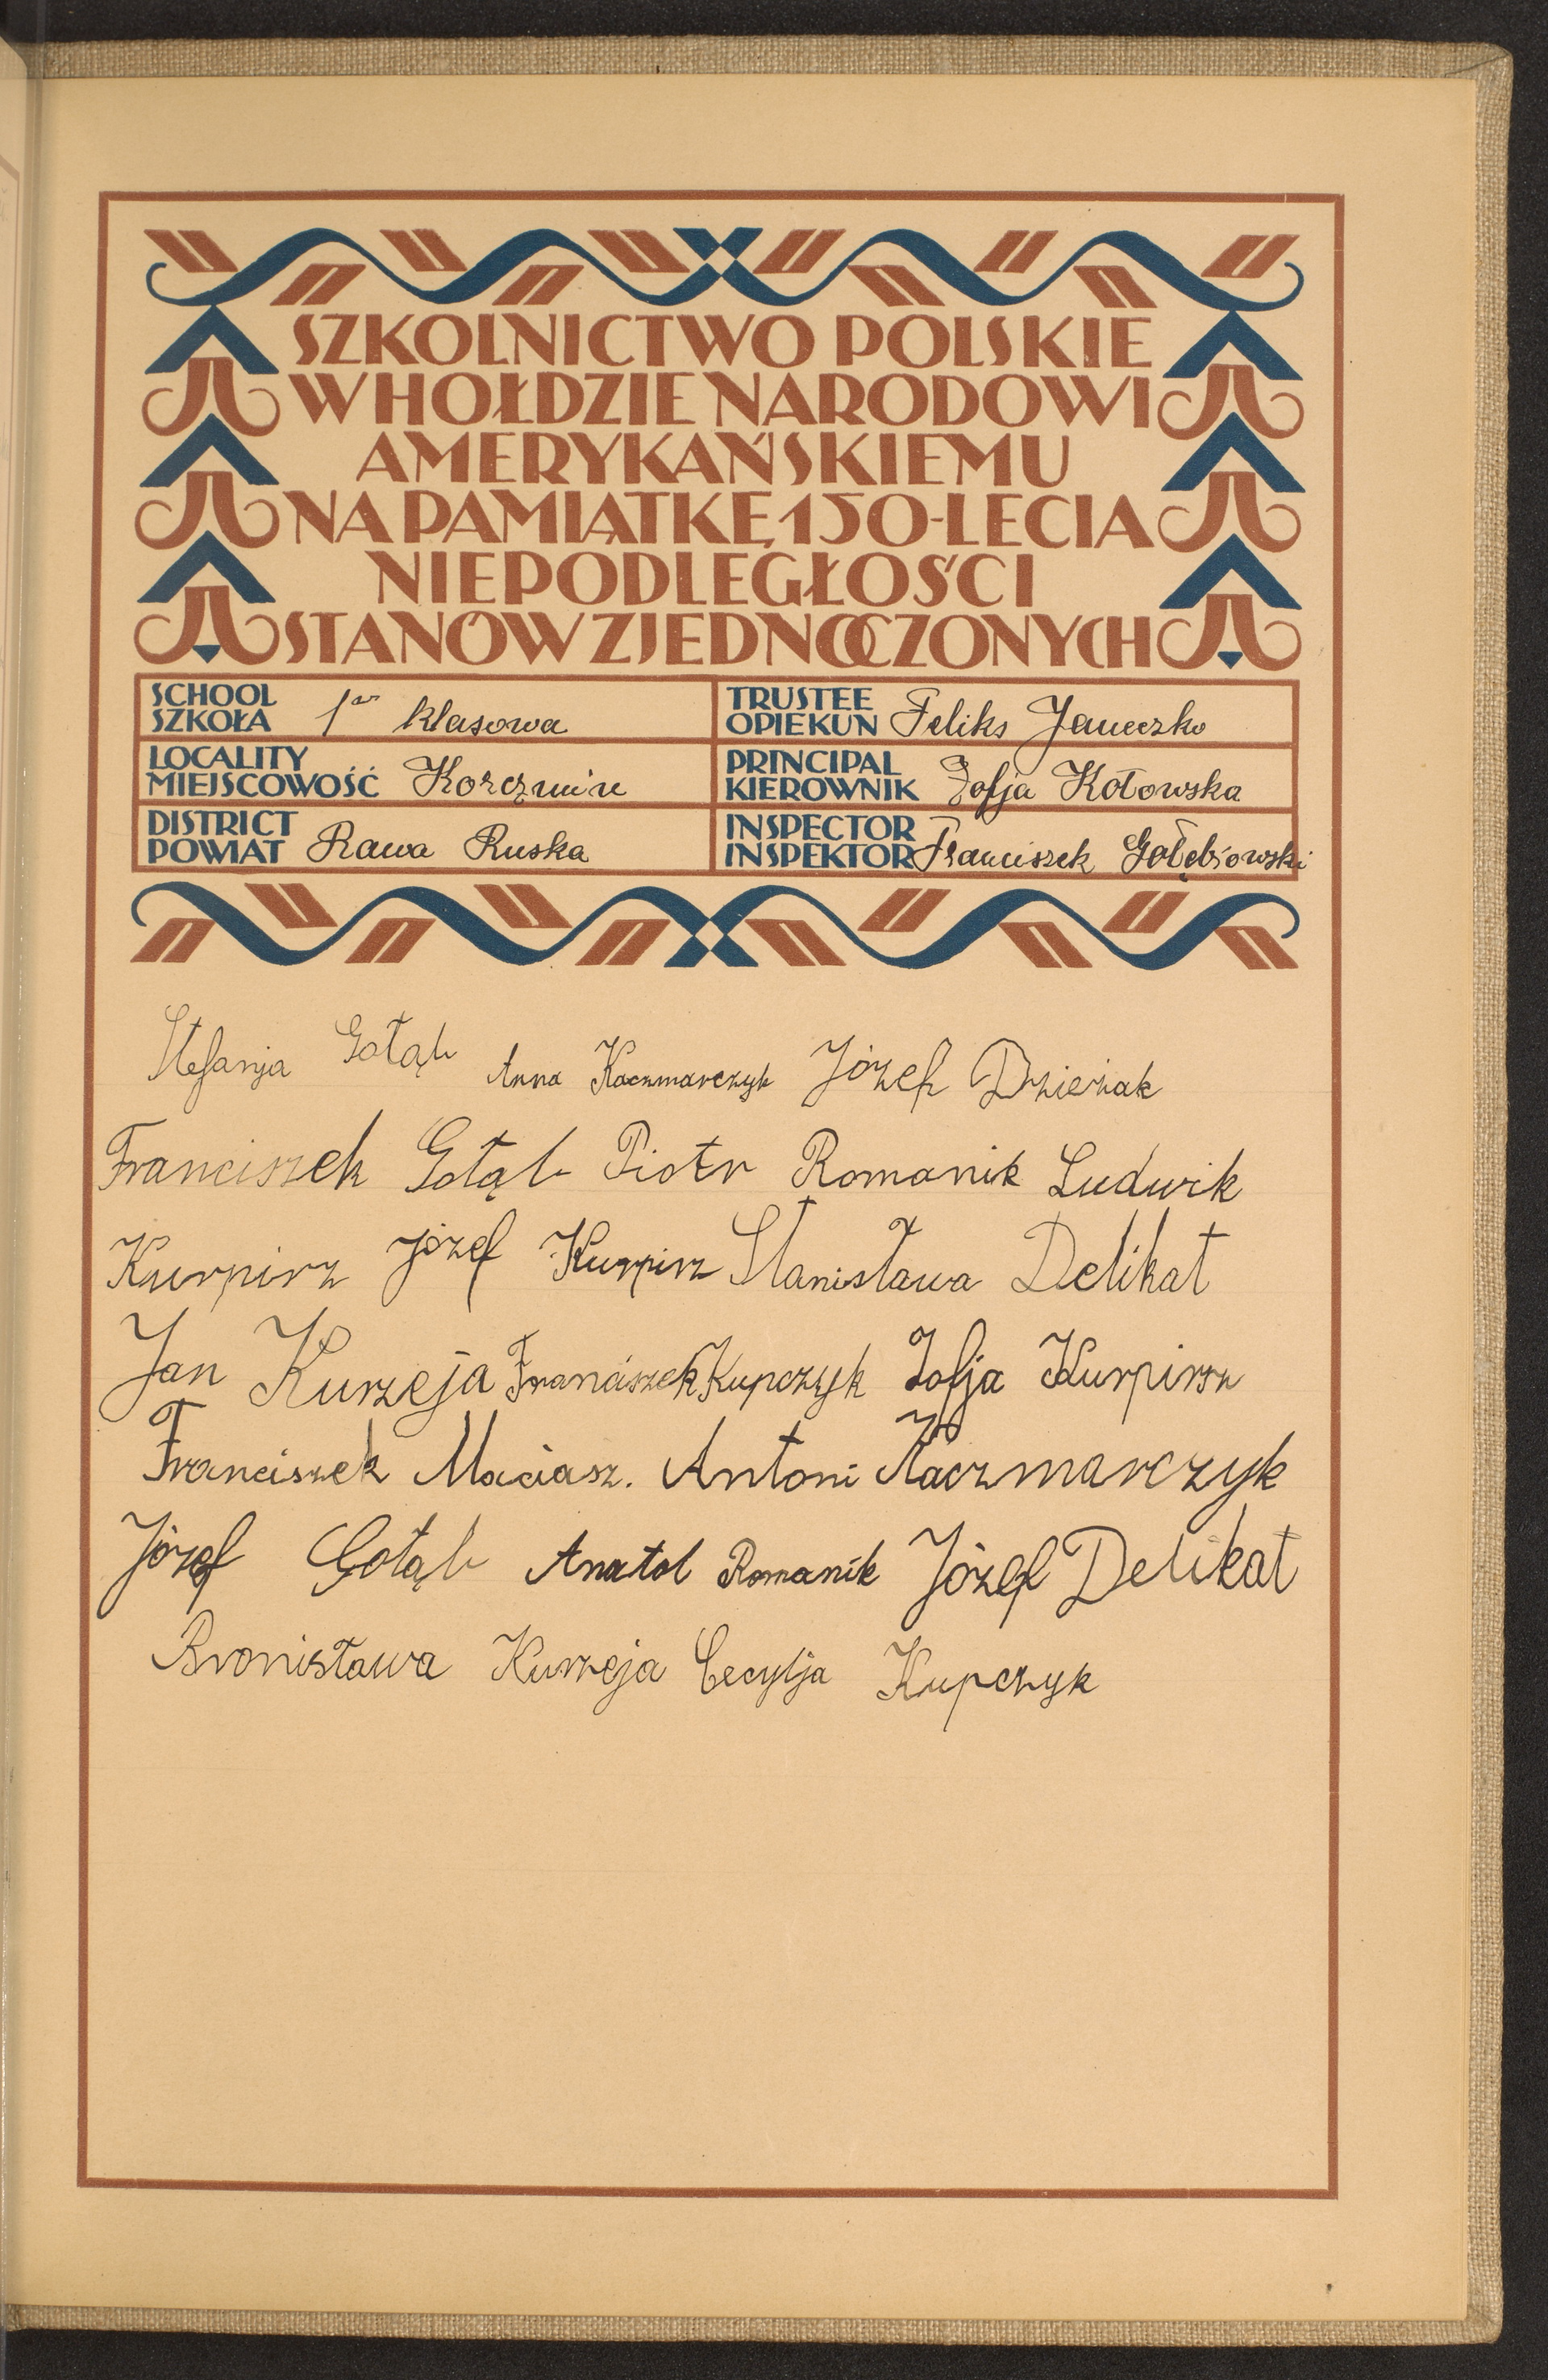 SZKOLNICTWO POLSKIE
W HOŁDZIE NARODOWI
AMERYKAŃSKIEMU
NA PAMIĄTKĘ 150-LECIA
NIEPODLEGŁOŚCI
STANÓW ZJEDNOCZONYCH
SCHOOL
SZKOŁA 1-a klasowa
TRUSTEE
OPIEKUN Feliks Janeczko
LOCALITY
MIEJSCOWOŚĆ Korczmin
PRINCIPAL
KIEROWNIK Zofja Kołowska
DISTRICT
POWIAT Rawa Ruska
INSPECTOR
INSPEKTOR Franciszek Gołębiowski
Stefanja Gołąb Anna Kaczmarczyk Józef Dzierżak
Franciszek Gołąb Piotr Romanik Ludwik
Kurpirz Józef Kurpirz Stanisława Delikat
Jan Kurzeja Franciszek Kupczyk Zofja Kurpirsz
Franciszek Maciasz. Antoni Kaczmarczyk
Józef Gołąb Anatol Romanik Józef Delikat
Bronisława Kurzeja Cecylja Kupczyk